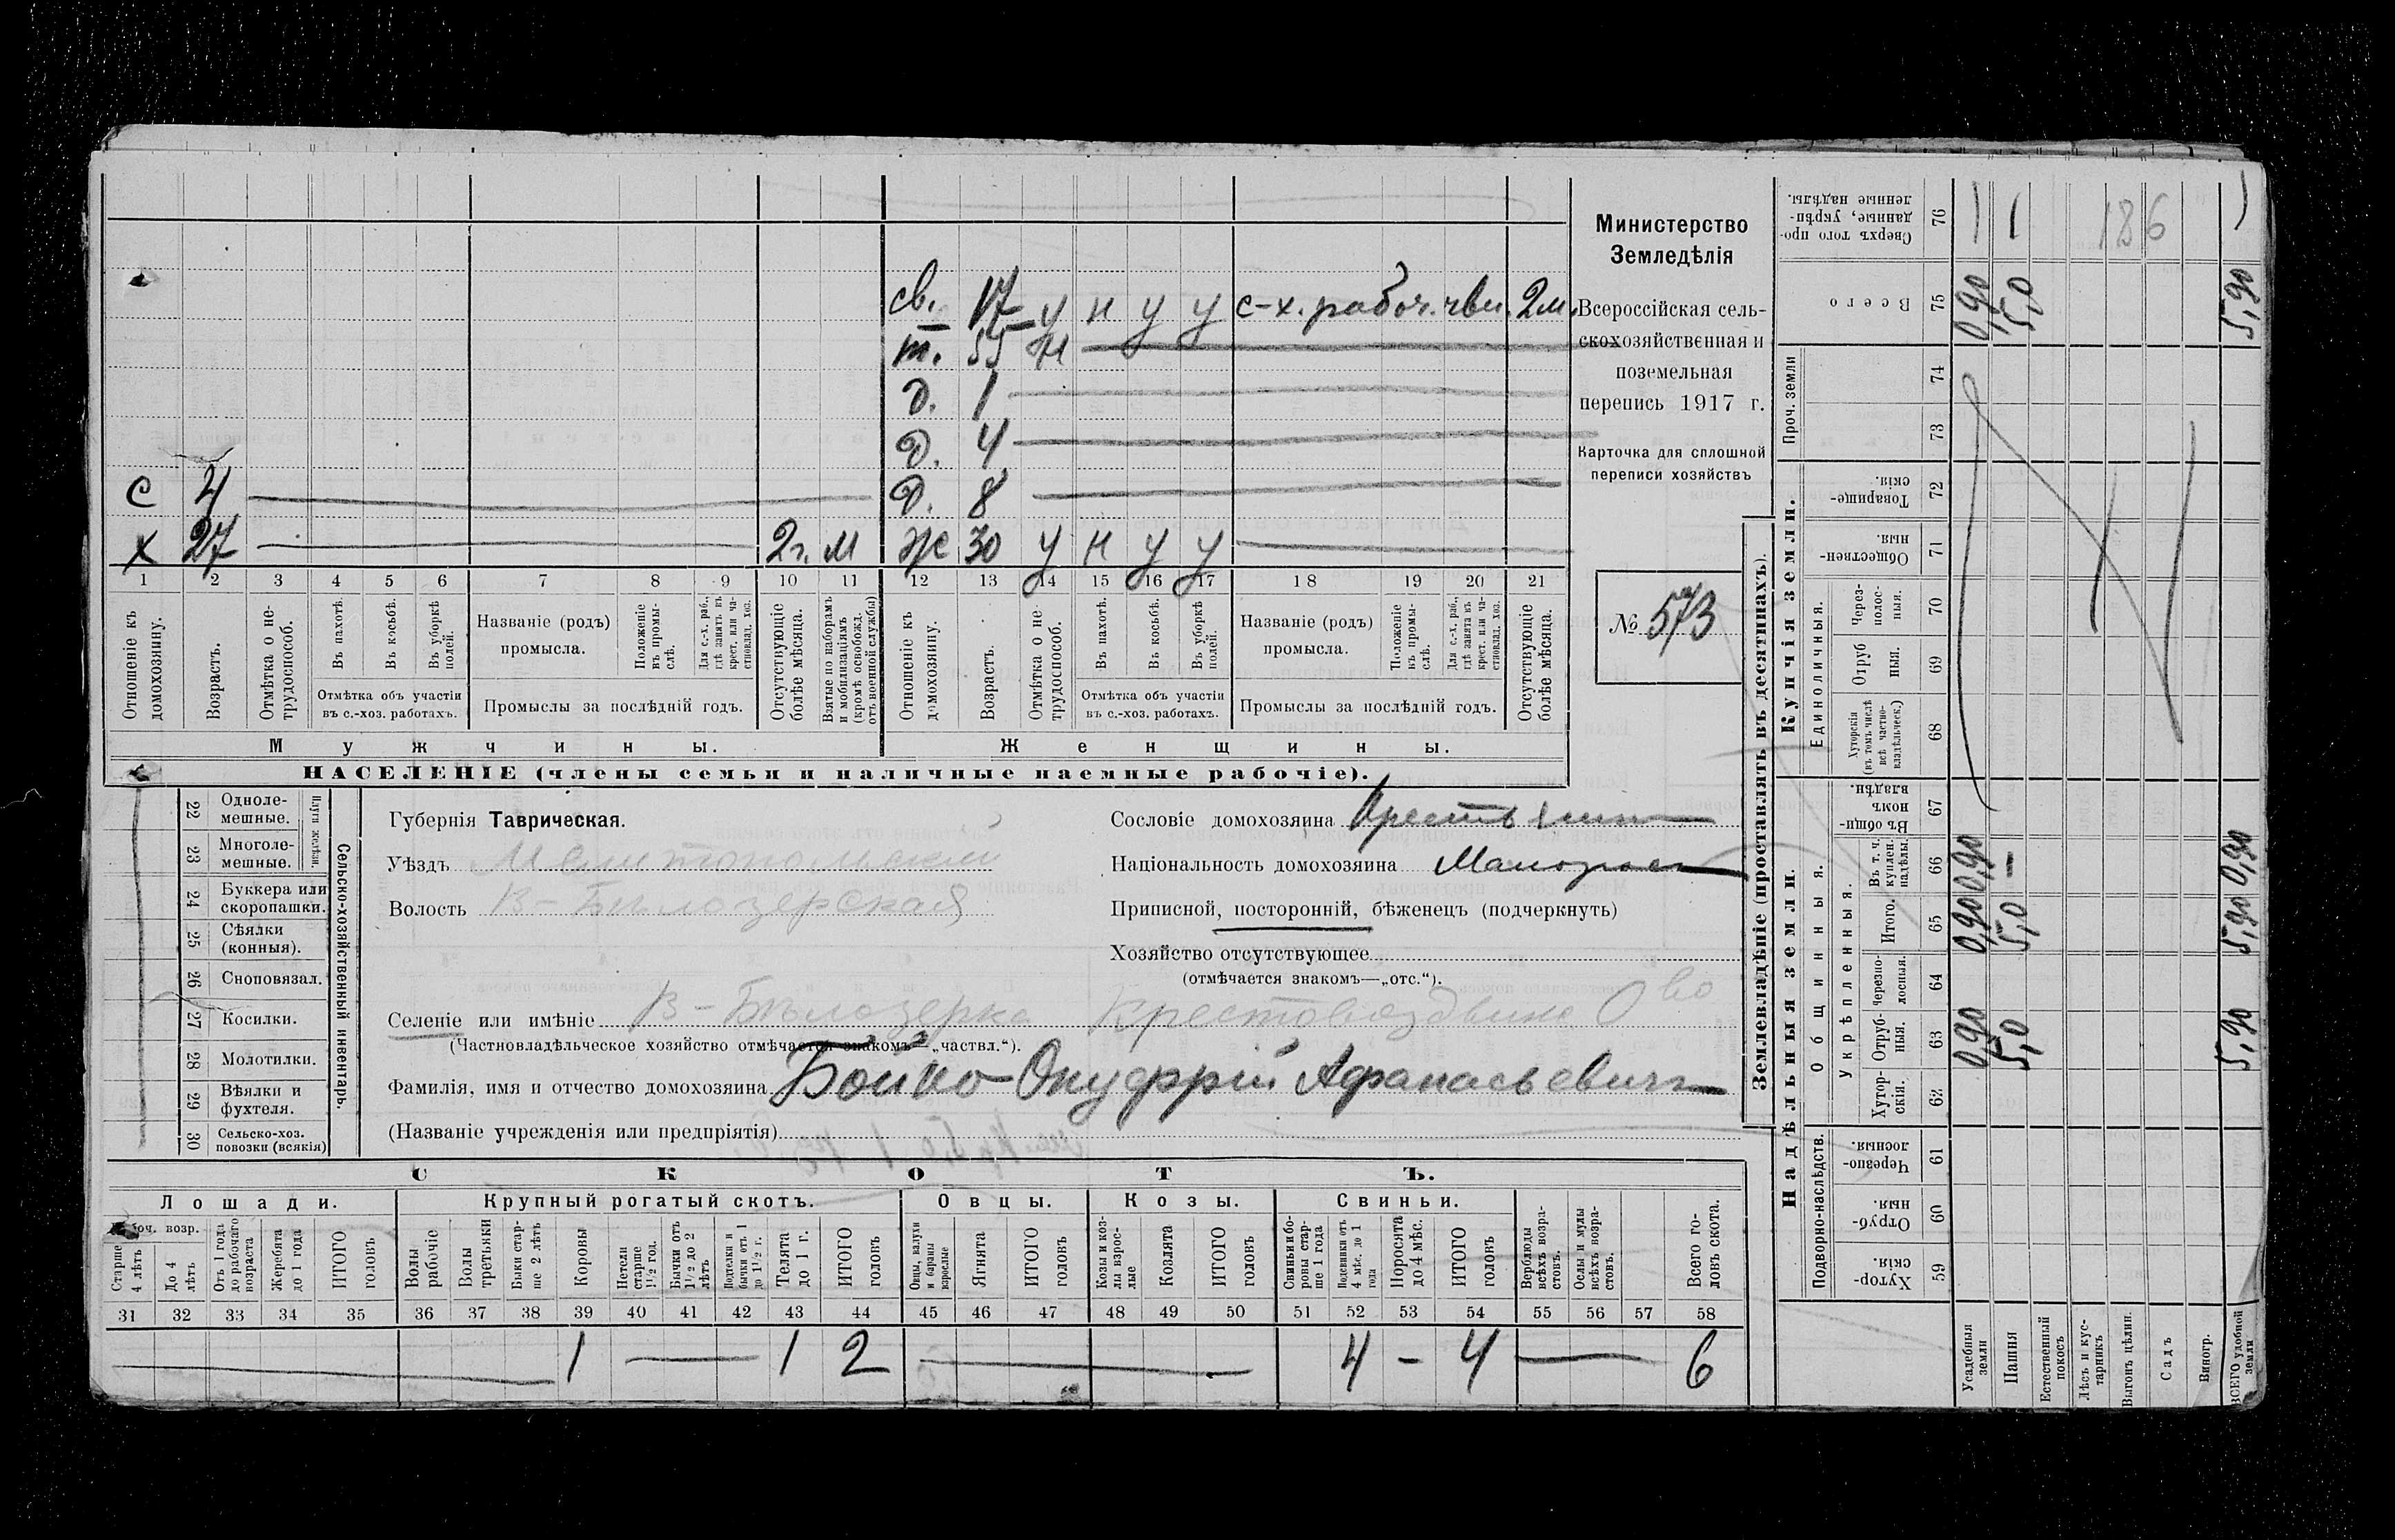 св. 17 у н у у с-х. рабоч. чвл. 2м.
т. 55 н
д. 1
д. 4
с 4 д. 8
х 27 2г. м ж 30 у н у у
1 2 3 4 5 6 7 8 9 10 11 12 13 14 15 16 17 18 19 20 21
Отношеніе къ домохозяину.
Возрастъ.
Отмѣтка о нетрудоспособ.
Въ пахотѣ.
Въ косьбѣ.
Въ уборкѣ полей.
Отмѣтка объ участіи въ с.-хоз. работахъ.
Названіе (родъ) промысла.
Положеніе въ промыслѣ.
Для с.-х. раб., гдѣ занятъ въ крест. или частновлад. хоз.
Промыслы за послѣдній годъ.
Отсутствующіе болѣе мѣсяца.
Взятые по наборамъ и мобилизаціямъ (кромѣ освобожд. отъ военной службы)
Отношеніе къ домохозяину.
Возрастъ.
Отмѣтка о нетрудоспособ.
Въ пахотѣ.
Въ косьбѣ.
Въ уборкѣ полей.
Отмѣтка объ участіи въ с.-хоз. работахъ.
Названіе (родъ) промысла.
Положеніе въ промыслѣ.
Для с.-х. раб., гдѣ занята въ крест. или частновлад. хоз.
Промыслы за послѣдній годъ.
Отсутствующіе болѣе мѣсяца.
Мужчины. Женщины.
НАСЕЛЕНІЕ (члены семьи и наличные наемные рабочіе).
Министерство
Земледѣлія
Всероссійская сель-
скохозяйственная и
поземельная
перепись 1917 г.
Карточка для сплошной
переписи хозяйствъ
№ 573
22 Одноле-мешные.
23 Многоле-мешные.
Плуги желѣзн.
24 Буккера или скоропашки.
25 Сѣялки (конныя).
26 Сноповязал.
27 Косилки.
28 Молотилки.
29 Вѣялки и фухтеля.
30 Сельско-хоз. повозки (всякія)
Сельско-хозяйственный инвентарь.
Губернія Таврическая.
Уѣздъ Мелитопольскій
Волость В-Бѣлозерская
Сословіе домохозяина Крестьянин
Національность домохозяина Малоросс
Приписной, посторонній, бѣженецъ (подчеркнуть)
Хозяйство отсутствующее
(отмѣчается знакомъ—„отс.“).
Селеніе или имѣніе В-Бѣлозерка Крестовоздвиж О во
(Частновладѣльческое хозяйство отмѣчается знакомъ—„частвл.“).
Фамилія, имя и отчество домохозяина Бойко Онуфрій Афанасьевичъ
(Названіе учрежденія или предпріятія)
СКОТЪ.
Лошади. Крупный рогатый скотъ. Овцы. Козы. Свиньи.
Рабоч. возр.
Старше 4 лѣтъ
До 4 лѣтъ
Отъ 1 года до рабочаго возраста
Жеребята до 1 года
ИТОГО головъ
Волы рабочіе
Волы третьяки
Быки старше 2 лѣтъ
Коровы
Нетели старше 1½ год.
Бычки отъ 1½ до 2 лѣтъ
Подтелки и бычки отъ 1 до 1½ г.
Телята до 1 г.
ИТОГО головъ
Овцы, валухи и бараны взрослые
Ягнята
ИТОГО головъ
Козы и козлы взрослые
Козлята
ИТОГО головъ
Свиньи и боровы старше 1 года
Подсвинки отъ 4 мѣс. до 1 года
Поросята до 4 мѣс.
ИТОГО головъ
Верблюды всѣхъ возрастовъ.
Ослы и мулы всѣхъ возрастовъ.
Всего головъ скота.
31 32 33 34 35 36 37 38 39 40 41 42 43 44 45 46 47 48 49 50 51 52 53 54 55 56 57 58
1 — 1 2 — 4 – 4 — 6
Землевладѣніе (проставлять въ десятинахъ).
Купчія земли.
Надѣльныя земли.
Сверхъ того проданные, укрѣпленные надѣлы. 76 186
Всего 75 0,90 5,0 5,90
Проч. земли 74 73
Товарищескія. 72
Общественныя. 71
Единоличныя.
Черезполосныя. 70
Отрубныя. 69
Хуторскія (въ томъ числѣ всѣ частновладѣльческ.) 68
Общинныя.
Въ общинномъ владѣн. 67
Укрѣпленныя.
Въ т. ч. куплен. надѣлы. 66 0,90 — 0,90
Итого. 65 0,90 5,0 5,90
Черезполосныя. 64
Отрубныя. 63 0,90 5,0 5,90
Хуторскія. 62
Подворно-наслѣдств.
Черезполосныя. 61
Отрубныя 60
Хуторскія. 59
Усадебныя земли
Пашня
Естественный покосъ
Лѣсъ и кустарникъ
Выгонъ цѣлин.
Садъ
Виногр.
ВСЕГО удобной земли